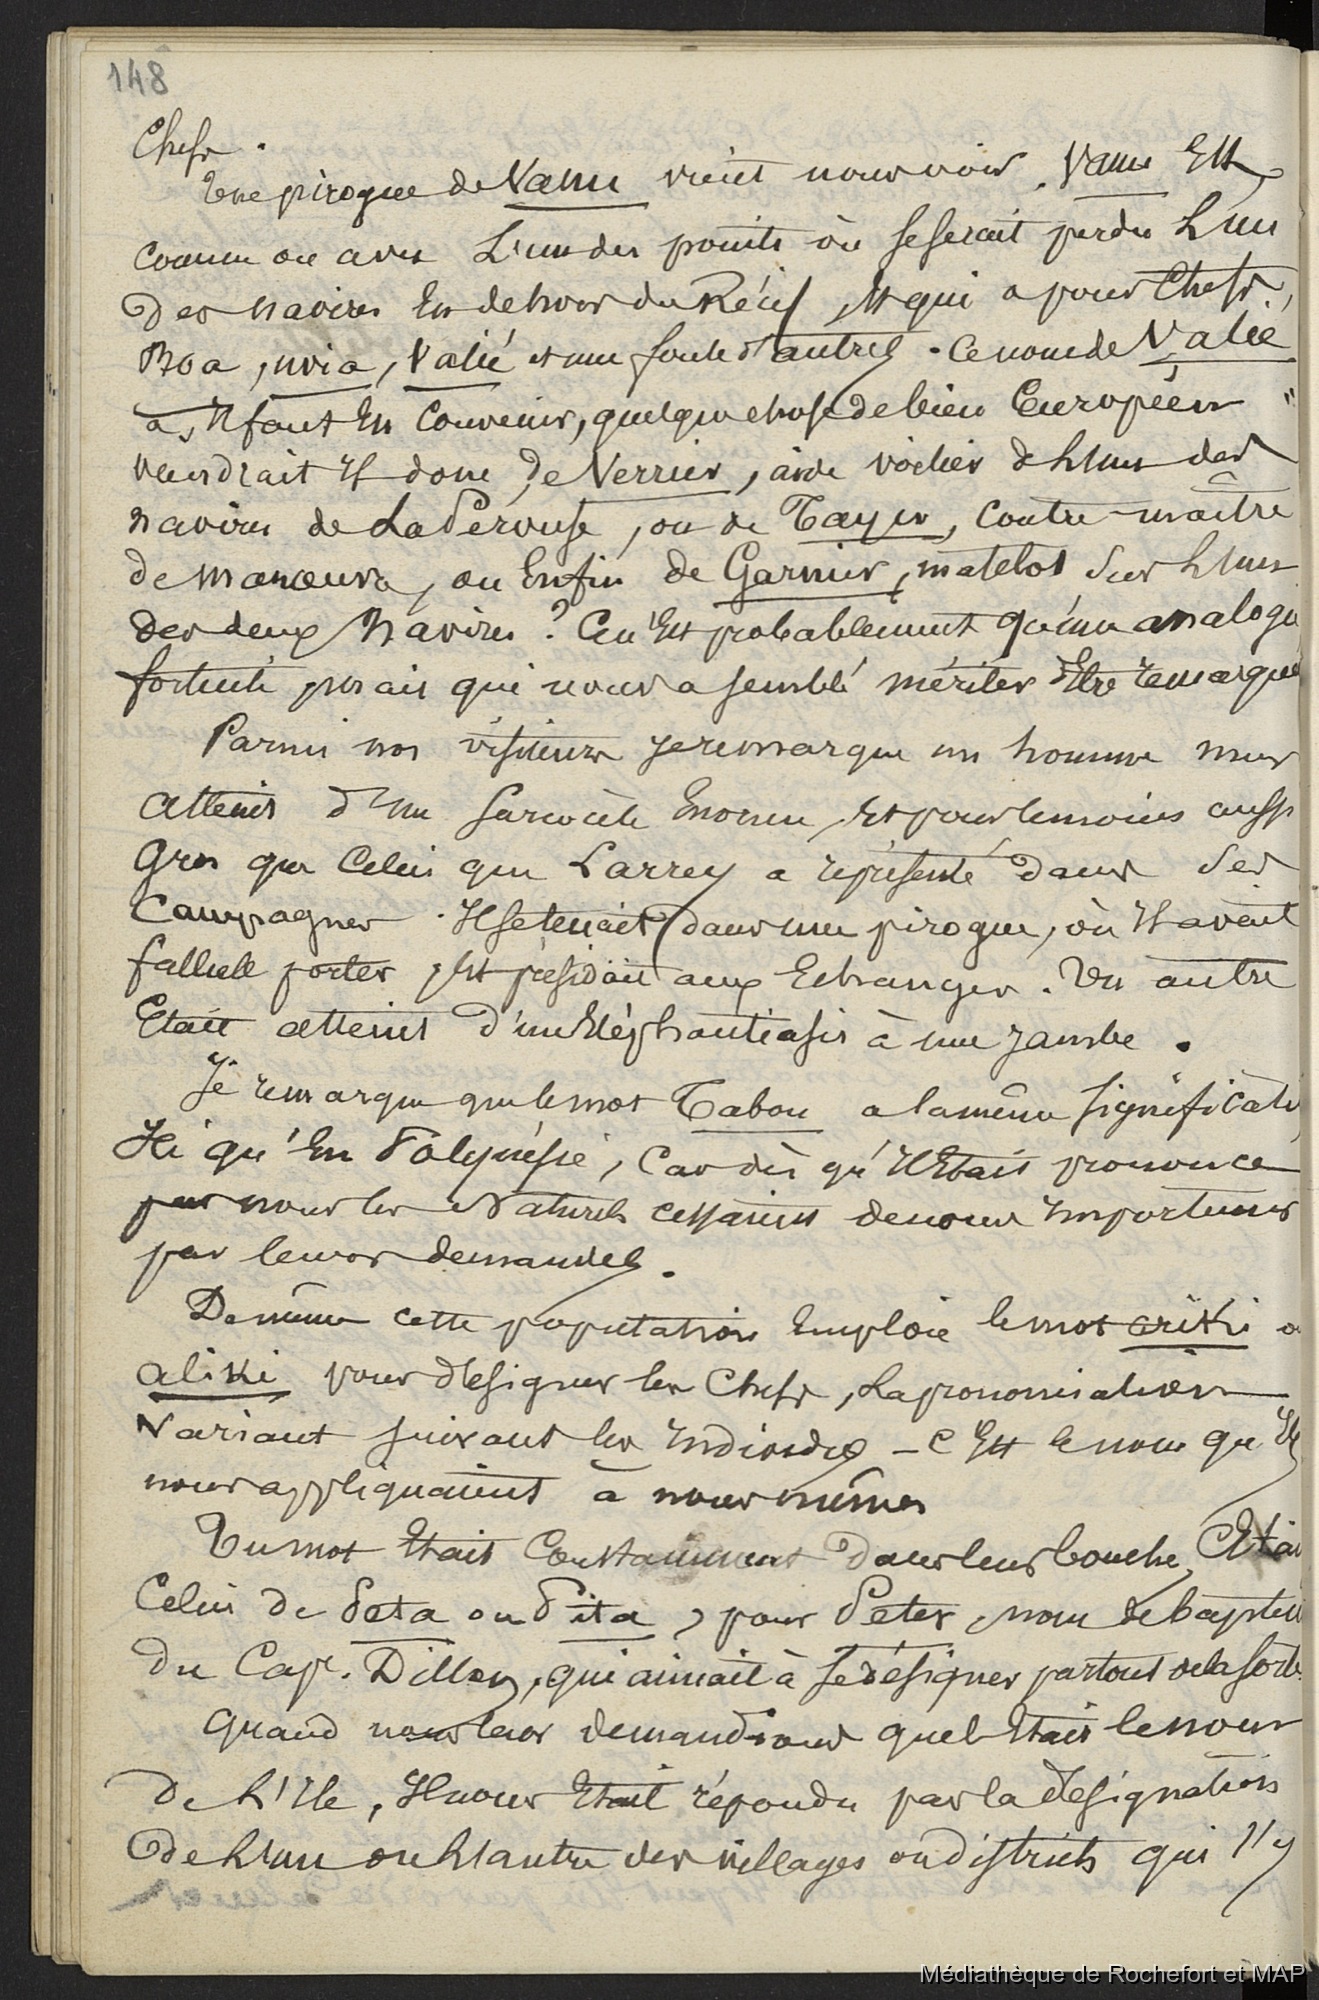 148
Chefs.
Une pirogue de Vanu vient nous voir. Vanu Est,
comme on avu L'un des points où se serait perdu L'un
Des navires En dehors du Récif, Et qui a pour Chefs,
Moa, nvia, Valié et une foule d'autres. Ce nom de Valié
a, Il faut En Convenir, quelque chose de bien Européen
viendrait Il donc de Verrier, aide voilier de L'un des
navires de La Pérouse, ou de Tayer, Contre-maître
de manœuvre, ou Enfin de Garnier, matelot Sur L'un
des deux Navires? Ce n'Est probablement qu'une analogie
fortuite, mais qui nous a semblé mériter d'Etre remarquée
Parmi nos visiteurs Je remarque un homme mur
atteint d'un Sarcocèle Enorme, Et pour le moins aussi
Gros que Celui que Larrey a représenté dans Ses
Campagnes. Il se tenait dans une pirogue, où Il avait
fallu le porter, Et présidait aux Echanges. Un autre
Etait atteint d'un Eléphantiasis à une Jambe.
Je remarque que le mot Tabou a la même significati
Ici qu'En Polynésie, Car dès qu'Il Etait prononcé
par nous les Naturels cessaient de nous Importuner
par leurs demandes.
De même cette population Emploie le mot ariki o
aliki pour désigner les Chefs, La prononciation
Variant suivant les Individus - C'Est le nom qu'Ils
nous appliquaient à nous mêmes
Un mot Etait Constamment dans leur bouche, C'Etai
Celui de Peta ou Pita, pour Peter, nom de baptem
du Cap. Dillon, qui aimait à se désigner partout de la sorte.
Quand nous leur demandions quel Etait le nom
De L'Ile, Il nous Etait répondu par la désignation
De L'un ou L'autre des villages ou districts qui s'y
Médiathèque de Rochefort et MAP